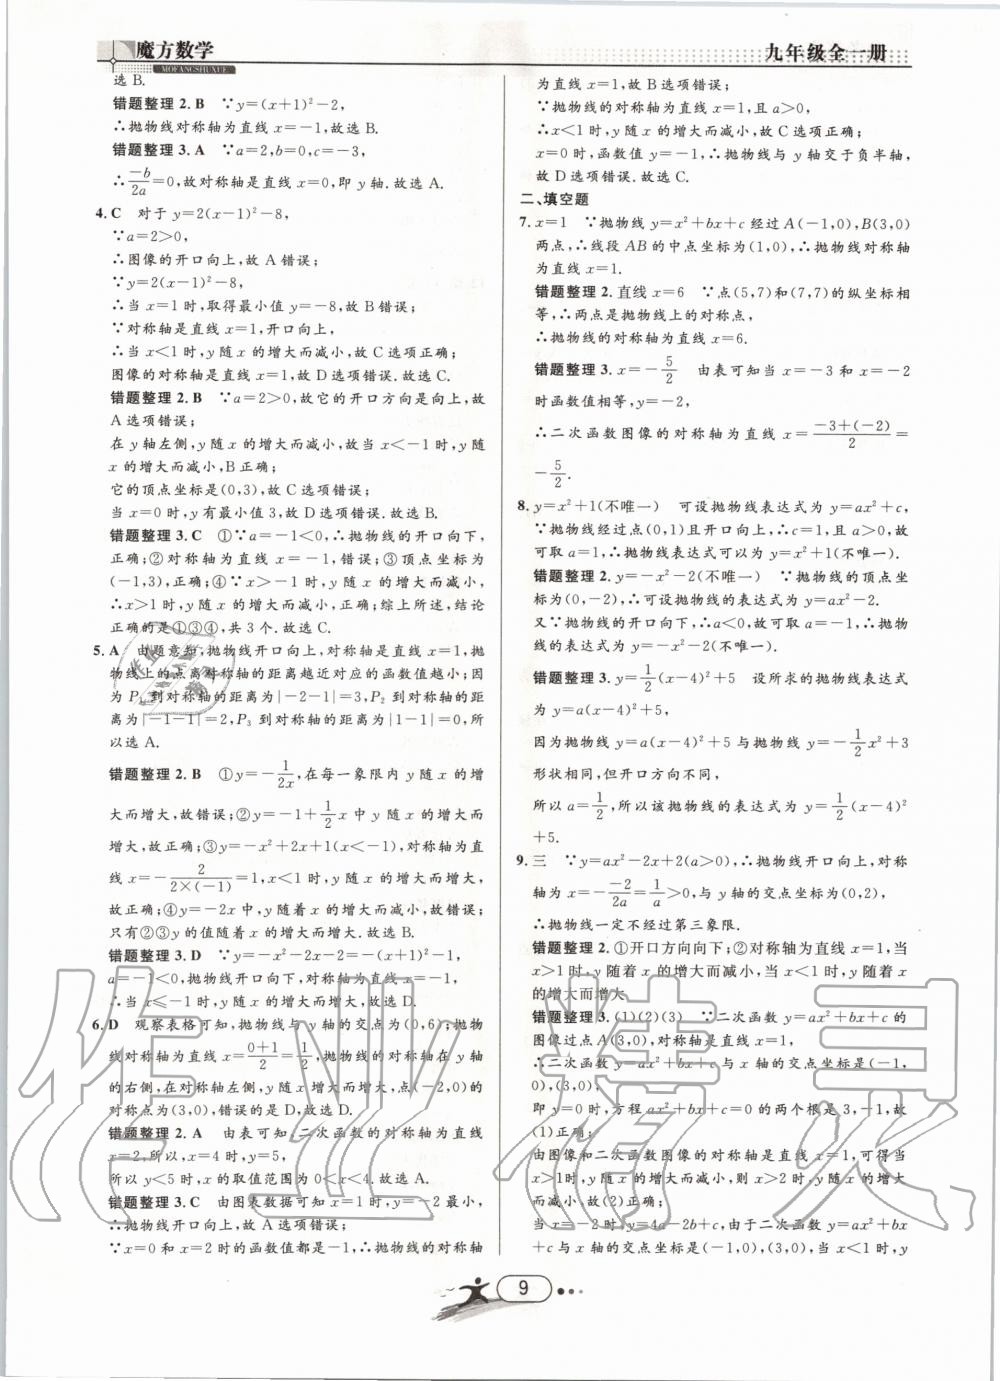 魔方数学
MOFANGSHUXUE
九年级全一册
选 B.
错题整理 2. B ∵y=(x+1)²-2,
∴抛物线对称轴为直线 x=-1,故选 B.
错题整理 3. A ∵a=2,b=0,c=-3,
∴-b/2a=0,故对称轴是直线 x=0,即 y 轴.故选 A.
4. C 对于 y=2(x-1)²-8,
∵a=2>0,
∴图像的开口向上,故 A 错误;
∵y=2(x-1)²-8,
∴当 x=1 时,取得最小值 y=-8,故 B 错误;
∵对称轴是直线 x=1,开口向上,
∴当 x<1 时,y 随 x 的增大而减小,故 C 选项正确;
图像的对称轴是直线 x=1,故 D 选项错误.故选 C.
错题整理 2. B ∵a=2>0,故它的开口方向是向上,故
A 选项错误;
在 y 轴左侧,y 随 x 的增大而减小,故当 x<-1 时,y 随
x 的增大而减小,B 正确;
它的顶点坐标是(0,3),故 C 选项错误;
当 x=0 时,y 有最小值 3,故 D 选项错误.故选 B.
错题整理 3. C ①∵a=-1<0,∴抛物线的开口向下,
正确;②对称轴为直线 x=-1,错误;③顶点坐标为
(-1,3),正确;④∵x>-1 时,y 随 x 的增大而减小,
∴x>1 时,y 随 x 的增大而减小,正确;综上所述,结论
正确的是①③④,共 3 个.故选 C.
5. A 由题意知,抛物线开口向上,对称轴是直线 x=1,
抛物线上的点离对称轴的距离越近对应的函数值越小;因
为 P₁ 到对称轴的距离为|-2-1|=3,P₂ 到对称轴的距
离为|-1-1|=2,P₃ 到对称轴的距离为|1-1|=0,所
以选 A.
错题整理 2. B ①y=-1/2x,在每一象限内 y 随 x 的增
大而增大,故错误;②y=-1+1/2x 中 y 随 x 的增大而
增大,故正确;③y=-x²+2x+1(x<-1),对称轴为直
线 x=-2/2×(-1)=1,x<1 时,y 随 x 的增大而增大,
故正确;④y=-2/x,x>0 时,y 随 x 的增大而增大,故错误;
只有②③y 的值随着 x 的增大而增大.故选 B.
错题整理 3. D ∵y=-x²-2x-2=-(x+1)²-1,
a=-1<0,抛物线开口向下,对称轴为直线 x=-1,
∴当 x≤-1 时,y 随 x 的增大而增大,故选 D.
6. D 观察表格可知,抛物线与 y 轴的交点为(0,6);抛物
线对称轴为直线 x=0+1/2=1/2,抛物线的对称轴在 y 轴
的右侧,在对称轴左侧,y 随 x 增大而增大,点(-2,0)的
对称点为(3,0),错误的是 D,故选 D.
错题整理 2. A 由表可知,二次函数的对称轴为直线
x=2,所以,x=4 时,y=5,
所以 y<5 时,x 的取值范围为 0<x<4.故选 A.
错题整理 3. C 由图表数据可知 x=1 时,y=-2 最小,
∴抛物线开口向上,故 A 选项错误;
∵x=0 和 x=2 时的函数值都是-1,∴抛物线的对称轴
为直线 x=1,故 B 选项错误;
∵抛物线的对称轴为直线 x=1,且 a>0,
∴x<1 时,y 随 x 的增大而减小,故 C 选项正确;
x=0 时,函数值 y=-1,∴抛物线与 y 轴交于负半轴,
故 D 选项错误.故选 C.
二、填空题
7. x=1 ∵抛物线 y=x²+bx+c 经过 A(-1,0),B(3,0)
两点,∴线段 AB 的中点坐标为(1,0),∴抛物线对称轴
为直线 x=1.
错题整理 2. 直线 x=6 ∵点(5,7)和(7,7)的纵坐标相
等,∴两点是抛物线上的对称点,
∴抛物线的对称轴为直线 x=6.
错题整理 3. x=-5/2 由表可知当 x=-3 和 x=-2
时函数值相等,y=-2,
∴二次函数图像的对称轴为直线 x=-3+(-2)/2=
-5/2.
8. y=x²+1(不唯一) 可设抛物线表达式为 y=ax²+c,
∵抛物线经过点(0,1)且开口向上,∴c=1,且 a>0,故
可取 a=1,∴抛物线表达式可以为 y=x²+1(不唯一).
错题整理 2. y=-x²-2(不唯一) ∵抛物线的顶点坐
标为(0,-2),∴可设抛物线的表达式为 y=ax²-2.
又∵抛物线的开口向下,∴a<0,故可取 a=-1,∴抛物
线的表达式为 y=-x²-2(不唯一).
错题整理 3. y=1/2(x-4)²+5 设所求的抛物线表达式
为 y=a(x-4)²+5,
因为抛物线 y=a(x-4)²+5 与抛物线 y=-1/2x²+3
形状相同,但开口方向不同,
所以 a=1/2,所以该抛物线的表达式为 y=1/2(x-4)²
+5.
9. 三 ∵y=ax²-2x+2(a>0),∴抛物线开口向上,对称
轴为 x=--2/2a=1/a>0,与 y 轴的交点坐标为(0,2),
∴抛物线一定不经过第三象限.
错题整理 2. ①开口方向向下;②对称轴为直线 x=1,当
x>1 时,y 随着 x 的增大而减小,当 x<1 时,y 随着 x
的增大而增大
错题整理 3. (1)(2)(3) ∵二次函数 y=ax²+bx+c 的
图像过点 A(3,0),对称轴是直线 x=1,
∴二次函数 y=ax²+bx+c 与 x 轴的交点坐标是(-1,
0),(3,0),
即 y=0 时,方程 ax²+bx+c=0 的两个根是 3,-1,故
(1)正确;
由图像和二次函数图像的对称轴是直线 x=1,可得当
x>1时,y 随 x 的增大而减小,则 x>2 时,y 随 x 的增
大而减小,故(2)正确;
当 x=-2 时,y=4a-2b+c,由于二次函数 y=ax²+bx
+c 与 x 轴的交点坐标是(-1,0),(3,0),当 x<1 时,y
9
作业精灵